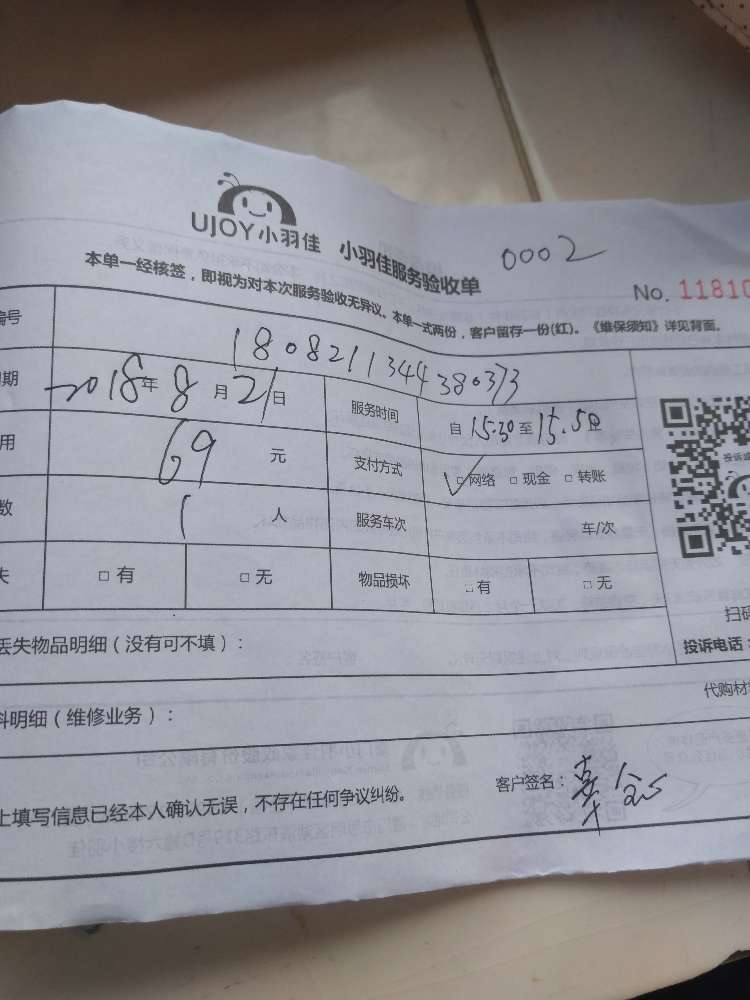 UJOY小羽佳 小羽佳服务验收单 0002
No. 11810
本单一经核签，即视为对本次服务验收无异议、本单一式两份，客户留存一份(红)。《维保须知》详见背面。
编号 1808211344380373
期 2018年8月21日 服务时间 自 15.30 至 15.50止
用 69 元 支付方式 ✓□网络 □现金 □转账
数 1 人 服务车次 车/次
失 □有 □无 物品损坏 □有 □无
扫码
丢失物品明细（没有可不填）：
投诉电话：
料明细（维修业务）：
代购材
上填写信息已经本人确认无误，不存在任何争议纠纷。
客户签名：